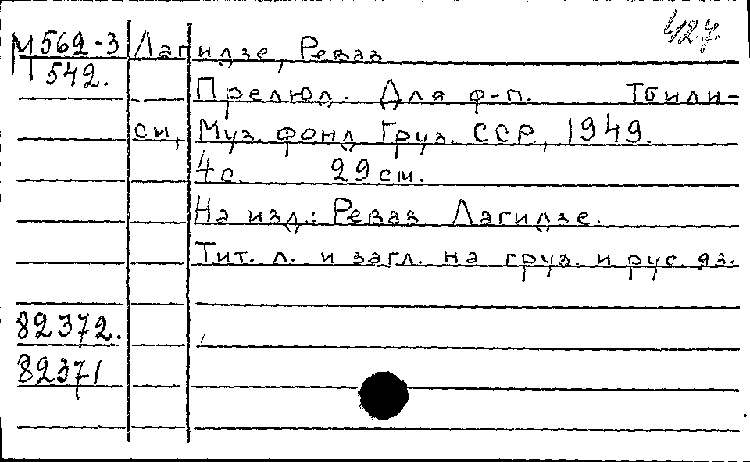 М 562-3 Лагидзе, Реваз
1542.
Прелюд. Для ф-п. Тбили-
си, Муз. фонд Груз. ССР, 1949.
4 с. 29 см.
На изд.: Реваз Лагидзе.
Тит. л. и загл. на груз. и рус. яз.
82372.
82371